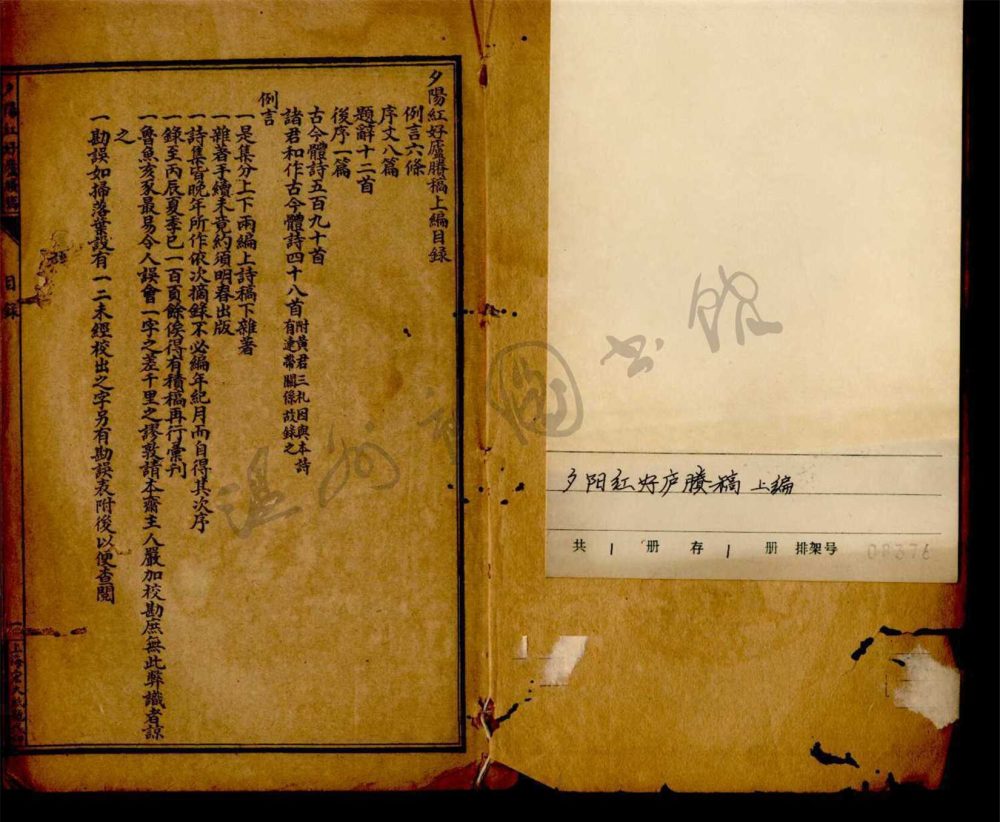 夕陽紅好廬賸稿上編目錄
例言六條
序文八篇
題辭十二首
後序一篇
古今體詩五百九十首
諸君和作古今體詩四十八首 附黃君三札因與本詩有連帶關係故錄之
例言
一是集分上下兩編上詩稿下雜著
一雜著手續未竟約須明春出版
一詩集皆晚年所作依次摘錄不必編年紀月而自得其次序
一錄至丙辰夏季已一百頁餘俟得有積稿再行彙刊
一魯魚亥豕最易令人誤會一字之差千里之謬敦請本齋主人嚴加校勘庶無此弊識者諒
之
一勘誤如掃落葉設有一二未經校出之字另有勘誤表附後以便查閱
夕陽紅好廬賸稿
目錄
一
夕阳红好庐賸稿 上编
共 1 册 存 1 册 排架号 08376
温州市图书馆